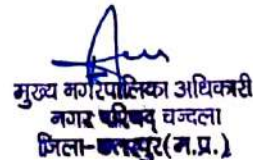 मुख्य नगरपालिका अधिकारी
नगर परिषद् चन्दला
जिला-छतरपुर (म.प्र.)